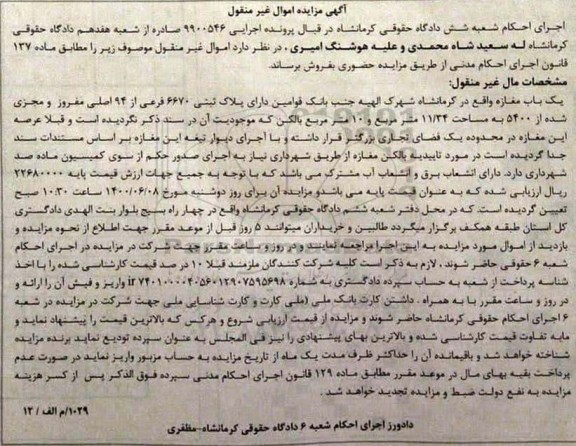 آگهی مزایده اموال غیر منقول
اجرای احکام شعبه شش دادگاه حقوقی کرمانشاه در قبال پرونده اجرایی ۹۹۰۰۵۴۶ صادره از شعبه هفدهم دادگاه حقوقی
کرمانشاه له سعید شاه محمدی و علیه هوشنگ امیری ، در نظر دارد اموال غیر منقول موصوف زیر را مطابق ماده ۱۳۷
قانون اجرای احکام مدنی از طریق مزایده حضوری بفروش برساند.
مشخصات مال غیر منقول:
یک باب مغازه واقع در کرمانشاه شهرک الهیه جنب بانک قوامین دارای پلاک ثبتی ۶۶۷۰ فرعی از ۹۴ اصلی مفروز و مجزی
شده از ۵۴۰۰ به مساحت ۱۱/۳۴ متر مربع و ۱۰ متر مربع بالکن که موجودیت آن در سند ذکر نگردیده است و قبلا عرصه
این مغازه در محدوده یک فضای تجاری بزرگتر قرار داشته و با اجرای دیوار تیغه این مغازه بر اساس مستندات سند
جدا گردیده است در مورد تاییدیه بالکن مغازه از طریق شهرداری نیاز به اجرای صدور حکم از سوی کمیسیون ماده صد
شهرداری دارد. دارای انشعاب برق و انشعاب آب مشترک می باشد که با توجه به جمیع جهات ارزش قیمت پایه ۲۲۶۸۰۰۰۰
ریال ارزیابی شده که به عنوان قیمت پایه می باشدو مزایده آن برای روز دوشنبه مورخ ۱۴۰۰/۰۶/۰۸ ساعت ۱۰:۳۰ صبح
تعیین گردیده است. که در محل دفتر شعبه ششم دادگاه حقوقی کرمانشاه واقع در چهار راه بسیج بلوار بنت الهدی دادگستری
کل استان طبقه همکف برگزار میگردد طالبین و خریداران میتوانند ۵ روز قبل از موعد مقرر جهت اطلاع از نحوه مزایده و
بازدید از اموال مورد مزایده به این اجرا مراجعه نمایند و در روز و ساعت مقرر جهت شرکت در مزایده در اجرای احکام
شعبه ۶ حقوقی حاضر شوند ، لازم به ذکر است کلیه شرکت کنندگان ملزمند قبلا ۱۰ در صد قیمت کارشناسی شده را با اخذ
شناسه پرداخت از شعبه به حساب سپرده دادگستری به شماره ir ۷۴۰۱۰۰۰۰۴۰۵۶۰۱۲۹۰۷۵۹۵۶۹۸ واریز و فیش آن را ارائه و
در روز و ساعت مقرر با به همراه . داشتن کارت بانک ملی (ملی کارت و کارت شناسایی ملی جهت شرکت در مزایده در شعبه
۶ اجرای احکام حقوقی کرمانشاه حاضر شوند و مزایده از قیمت ارزیابی شروع و هرکس که بالاترین قیمت را پیشنهاد نماید و
مابه تفاوت قیمت کارشناسی شده و بالاترین بهای پیشنهادی را نیز فی المجلس به عنوان سپرده تودیع نماید برنده مزایده
شناخته خواهد شد و باقیمانده آن را حداکثر ظرف مدت یک ماه از تاریخ مزایده به حساب مزبور واریز نماید در صورت عدم
پرداخت بقیه بهای مال در موعد مقرر مطابق ماده ۱۲۹ قانون اجرای احکام مدنی سپرده فوق الذکر پس از کسر هزینه
مزایده به نفع دولت ضبط و مزایده تجدید خواهد شد .
۱۰۲۹/م الف / ۱۲
دادورز اجرای احکام شعبه ۶ دادگاه حقوقی کرمانشاه-مظفری